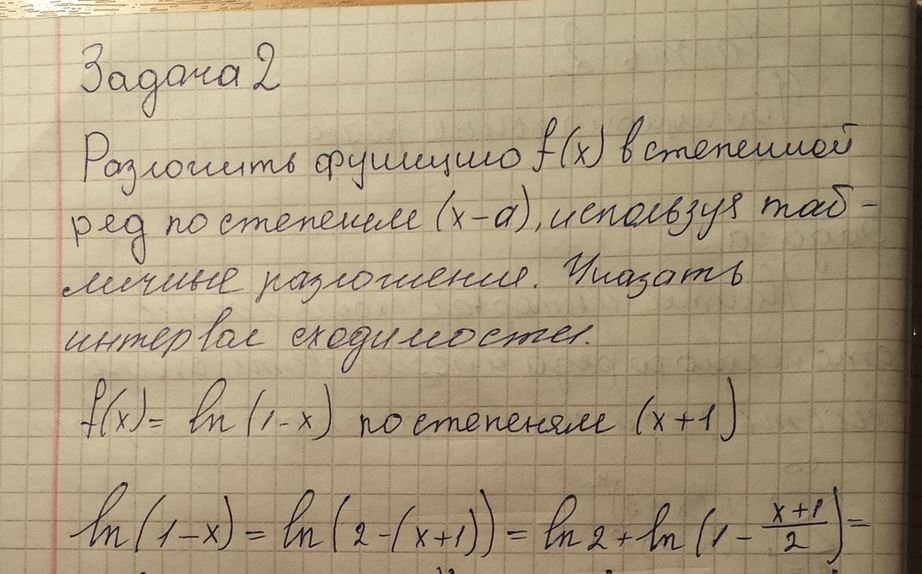 Задача 2
Разложить функцию f(x) в степенной
ряд по степеням (x-a), используя таб-
личные разложения. Указать
интервал сходимости.
f(x)= ln(1-x) по степеням (x+1)
ln(1-x) = ln(2-(x+1)) = ln2 + ln(1 - \frac{x+1}{2}) =